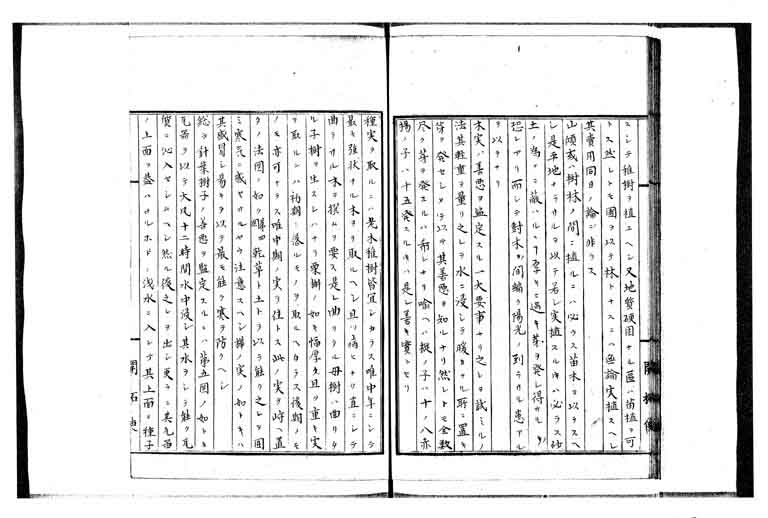 ニシテ稚樹ヲ植ユヘシ又地質硬固ナル區ハ苗植ヲ可
トス然レトモ圃ヲ以テ林トナスニハ無論實植スヘシ
其實用同日ノ論ニ非ラス
山傾或ハ樹林ノ間ニ植ルニハ必ラス苗木ヲ以ラスヘ
シ是平地ナラサルヲ以テ若シ實植スルキハ必ラス砂
土ノ為ニ蔽ハレテ孕キニ過キ芽ヲ發シ得サルノ
恐レアリ而シテ対木ノ間編ク陽光ノ到ラサル患アル
ヲ以テナリ
木実ノ善悪ヲ鑑定スル一大要事ナリ之レヲ試ミルノ
法其軽重ヲ量リ之レヲ水ニ浸シテ暖カナル所ニ置キ
芽ヲ發セシメテ以テ其善悪ヲ知ルナリ然レトモ全数
尽ク芽ヲ發スルハ稀レナリ喩ヘハ樅ノ子ハ十ノ八亦
楊ノ子ハ十五發スルキハ是レ善キ實トセリ
種実ヲ取ルニハ老木稚樹皆宜シカラス唯中年ニシテ
最モ強状ナル木ヨリ取ルヘシ且ツ病ヒナク直ニシテ
曲ラサル木ヲ撰ムヲ要ス是レ曲リタル母樹ハ曲リタ
ル子樹ヲ生スレハナリ栗樹ノ如キ幅厚ク且ツ重キ実
ヲ取ルニハ初期ニ落ルモノヲ取ルヘカラス後期ノモ
ノモ亦可ナラス唯中期ノ実ヲ佳トス此ノ実ヲ時ヘ置
クノ法図ノ如ク 乾草ト土トヲ以テ能ク之レヲ圍
ミ寒気ニ感セサルヤウ注意スヘシ樺ノ実ノ如キハ
其感冒シ易キヲ以テ最モ能ク寒ヲ防クヘシ
総テ針葉樹子ノ善悪ヲ鑑定スルニハ第五図ノ如キ
瓦器ヲ以テ大凡十二時間水中浸シ其水ヲシテ能ク瓦
質ニ沁入セシムヘシ然ル後之レヲ出シ更ラニ其瓦器
ノ上面ニ盈ハサルホドノ浅水ニ入レテ其上面ニ種子
開拓使
開拓使